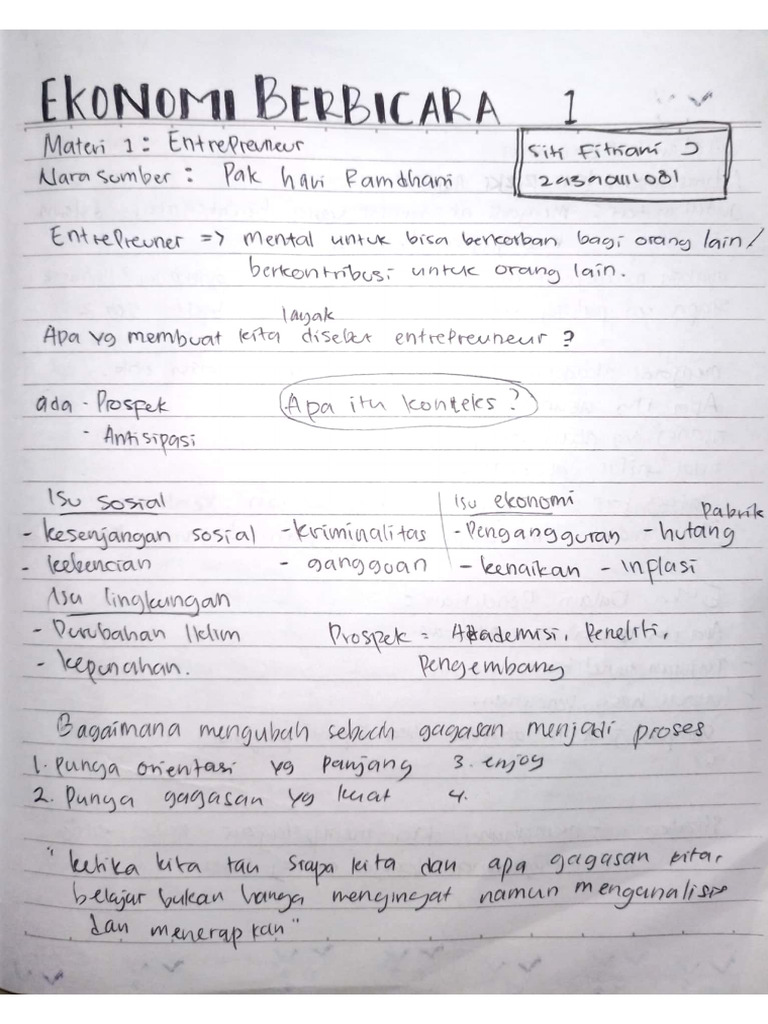 EKONOMI BERBICARA 1
Materi 1 : Entrepreneur
Siti Fitriani J
Nara sumber : Pak hari Ramdhani
Entrepreuner => mental untuk bisa berkorban bagi orang lain /
berkontribusi untuk orang lain.
layak
Apa yg membuat kita disebut entrepreuneur ?
ada - Prospek
Apa itu konteks ?
- Antisipasi
Isu sosial
Isu ekonomi
Pabrik
- kesenjangan sosial - kriminalitas
- Pengangguran - hutang
- kebencian - gangguan
- kenaikan - Inflasi
Isu lingkungan
- Perubahan Iklim
Prospek = Akademisi, Peneliti,
- kepunahan.
Pengembang
Bagaimana mengubah sebuah gagasan menjadi proses
1. Punya orientasi yg panjang 3. enjoy
2. Punya gagasan yg kuat 4.
"ketika kita tau siapa kita dan apa gagasan kita,
belajar bukan hanya mengingat namun menganalisis
dan menerapkan"